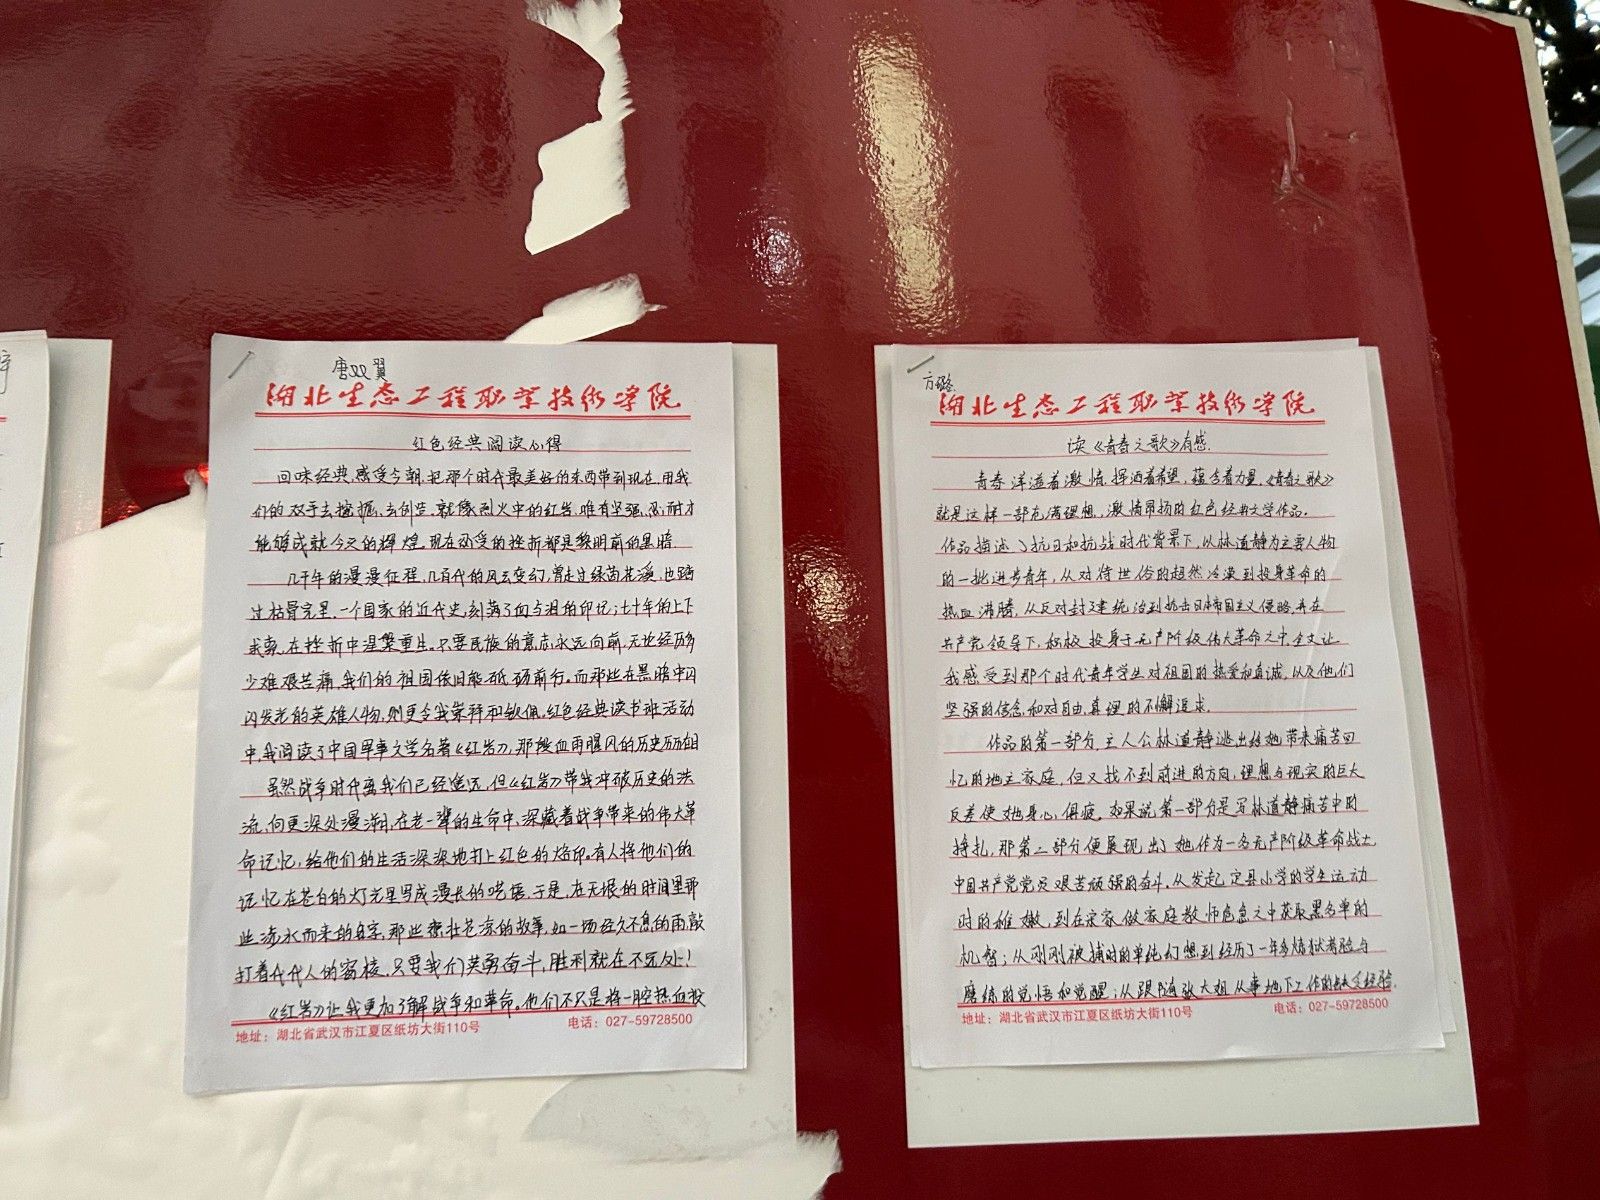 唐双翼
湖北生态工程职业技术学院
红色经典阅读心得
回味经典,感受今朝,把那个时代最美好的东西带到现在,用我
们的双手去挖掘、去创造。就像烈火中的红岩,唯有坚强、忍耐才
能够成就今天的辉煌。现在承受的挫折都是黎明前的黑暗。
几千年的漫漫征程,几百代的风云变幻,曾走过绿茵花溪,也踏
过枯骨荒里。一个国家的近代史,刻满了血与泪的印记;七十年的上下
求索,在挫折中涅槃重生。只要民族的意志永远向前,无论经历多
少难艰苦痛,我们的祖国依旧能砥砺前行。而那些在黑暗中闪
闪发光的英雄人物,则更令我崇拜和钦佩。红色经典读书班活动
中,我阅读了中国军事文学名著《红岩》,那段血雨腥风的历史历历在目
虽然战争时代离我们已经遥远,但《红岩》带我冲破历史的洪
流,向更深处漫溯,在老一辈的生命中,深藏着战争带来的伟大革
命记忆,给他们的生活深深地打上红色的烙印。有人将他们的
记忆在苍白的灯光里写成漫长的呓语,于是,在无垠的时间里那
些涉水而来的名字,那些悲壮苍凉的故事,如一场经久不息的雨,敲
打着代代人的窗棱,只要我们英勇奋斗,胜利就在不远处!
《红岩》让我更加了解战争和革命。他们不只是将一腔热血投
地址:湖北省武汉市江夏区纸坊大街110号 电话:027-59728500
方璐
湖北生态工程职业技术学院
读《青春之歌》有感
青春洋溢着激情,挥洒着希望,蕴含着力量,《青春之歌》
就是这样一部充满理想、激情昂扬的红色经典文学作品。
作品描述了抗日和抗战时代背景下,以林道静为主要人物
的一批进步青年,从对待世俗的超然冷漠到投身革命的
热血沸腾,从反对封建统治到抗击日本帝国主义侵略,并在
共产党领导下,积极投身于无产阶级伟大革命之中。全文让
我感受到那个时代青年学生对祖国的热爱和真诚,以及他们
坚强的信念,和对自由、真理的不懈追求。
作品的第一部分,主人公林道静逃出给她带来痛苦回
忆的地主家庭,但又找不到前进的方向,理想与现实的巨大
反差使她身心俱疲。如果说第一部分是写林道静痛苦中的
挣扎,那第二部分便展现出了她作为一名无产阶级革命战士、
中国共产党党员艰苦顽强的奋斗。从发起定县小学的学生运动
时的稚嫩,到在宋家做家庭教师危急之中获取黑名单的
机智;从刚刚被捕时的单纯幻想到经历了一年多牢狱考验与
磨练的觉悟和觉醒;从跟随张大姐从事地下工作的缺乏经验
地址:湖北省武汉市江夏区纸坊大街110号 电话:027-59728500